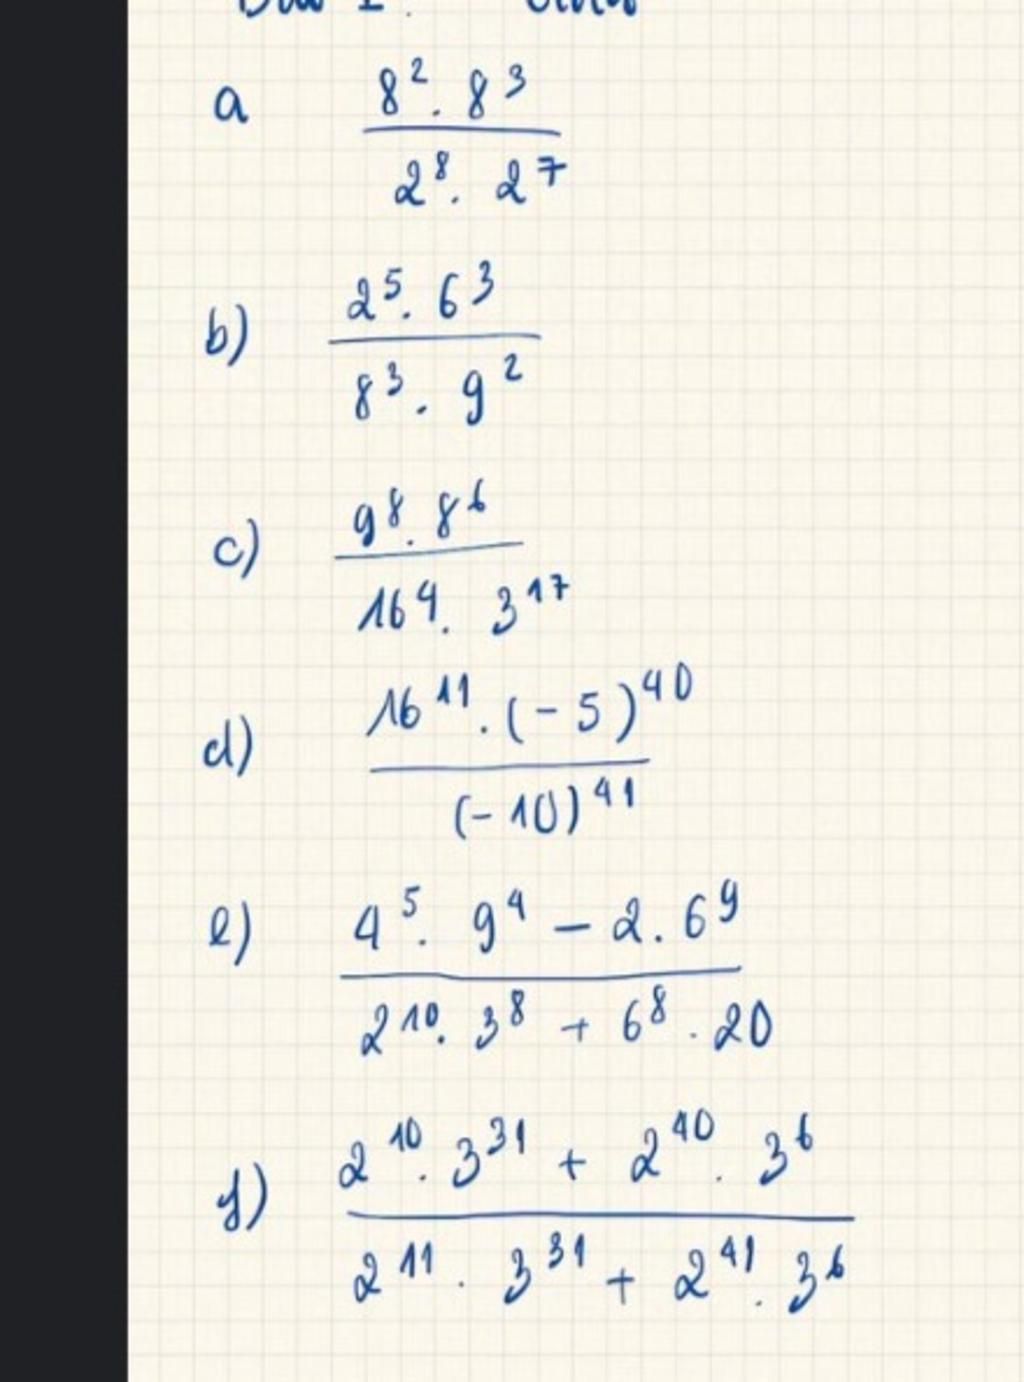 a $\frac{8^2 . 8^3}{2^8 . 2^7}$
b) $\frac{2^5 . 6^3}{8^3 . 9^2}$
c) $\frac{9^8 . 8^6}{16^4 . 3^{17}}$
d) $\frac{16^{11} . (-5)^{40}}{(-10)^{41}}$
e) $\frac{4^5 . 9^4 - 2 . 6^9}{2^{10} . 3^8 + 6^8 . 20}$
f) $\frac{2^{10} . 3^{31} + 2^{40} . 3^6}{2^{11} . 3^{31} + 2^{41} . 3^6}$